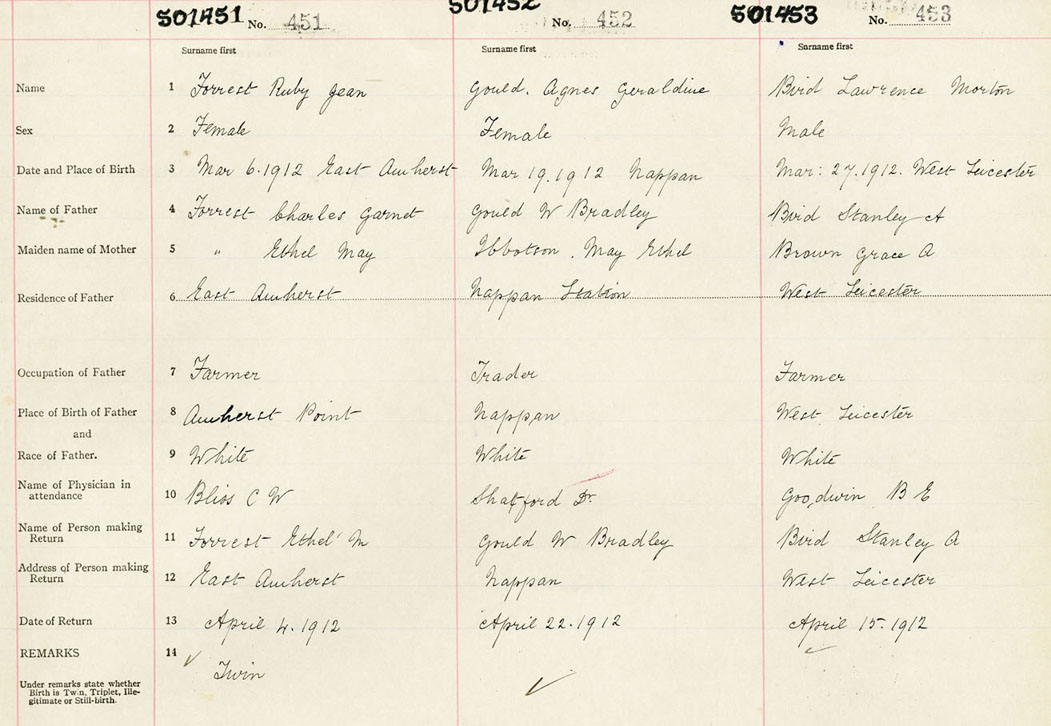 501451 No. 451 501452 No. 452 501453 No. 453
Surname first Surname first Surname first
Name 1 Forrest Ruby Jean Gould. Agnes Geraldine Bird Lawrence Morton
Sex 2 Female Female Male
Date and Place of Birth 3 Mar 6.1912 East Amherst Mar 19.1912 Nappan Mar: 27.1912. West Leicester
Name of Father 4 Forrest Charles Garnet Gould W Bradley Bird Stanley A
Maiden name of Mother 5 " Ethel May Ibbotson. May Ethel Brown Grace A
Residence of Father 6 East Amherst Nappan Station West Leicester
Occupation of Father 7 Farmer Trader Farmer
Place of Birth of Father 8 Amherst Point Nappan West Leicester
and
Race of Father. 9 White White White
Name of Physician in
attendance 10 Bliss C W Shafford Dr. Goodwin B E
Name of Person making
Return 11 Forrest Ethel M Gould W Bradley Bird Stanley A
Address of Person making
Return 12 East Amherst Nappan West Leicester
Date of Return 13 April 4.1912 April 22.1912 April 15.1912
REMARKS 14
Twin
Under remarks state whether
Birth is Twin, Triplet, Ille-
gitimate or Still-birth.